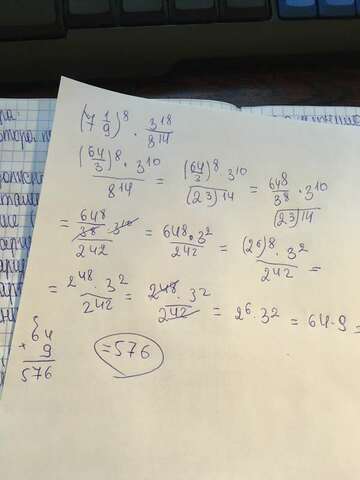 (7 1/9)^8 · 3^18/8^14
(64/3)^8 · 3^10 / 8^14 = (64/3)^8 · 3^10 / (23)^14 = 64^8/3^8 · 3^10 / (23)^14
= 64^8/3^8 · 3^10 / 2^42 = 64^8 · 3^2 / 2^42 = (2^6)^8 · 3^2 / 2^42 =
= 2^48 · 3^2 / 2^42 = 2^48 · 3^2 / 2^42 = 2^6 · 3^2 = 64·9 =
64
× 9
576
=576